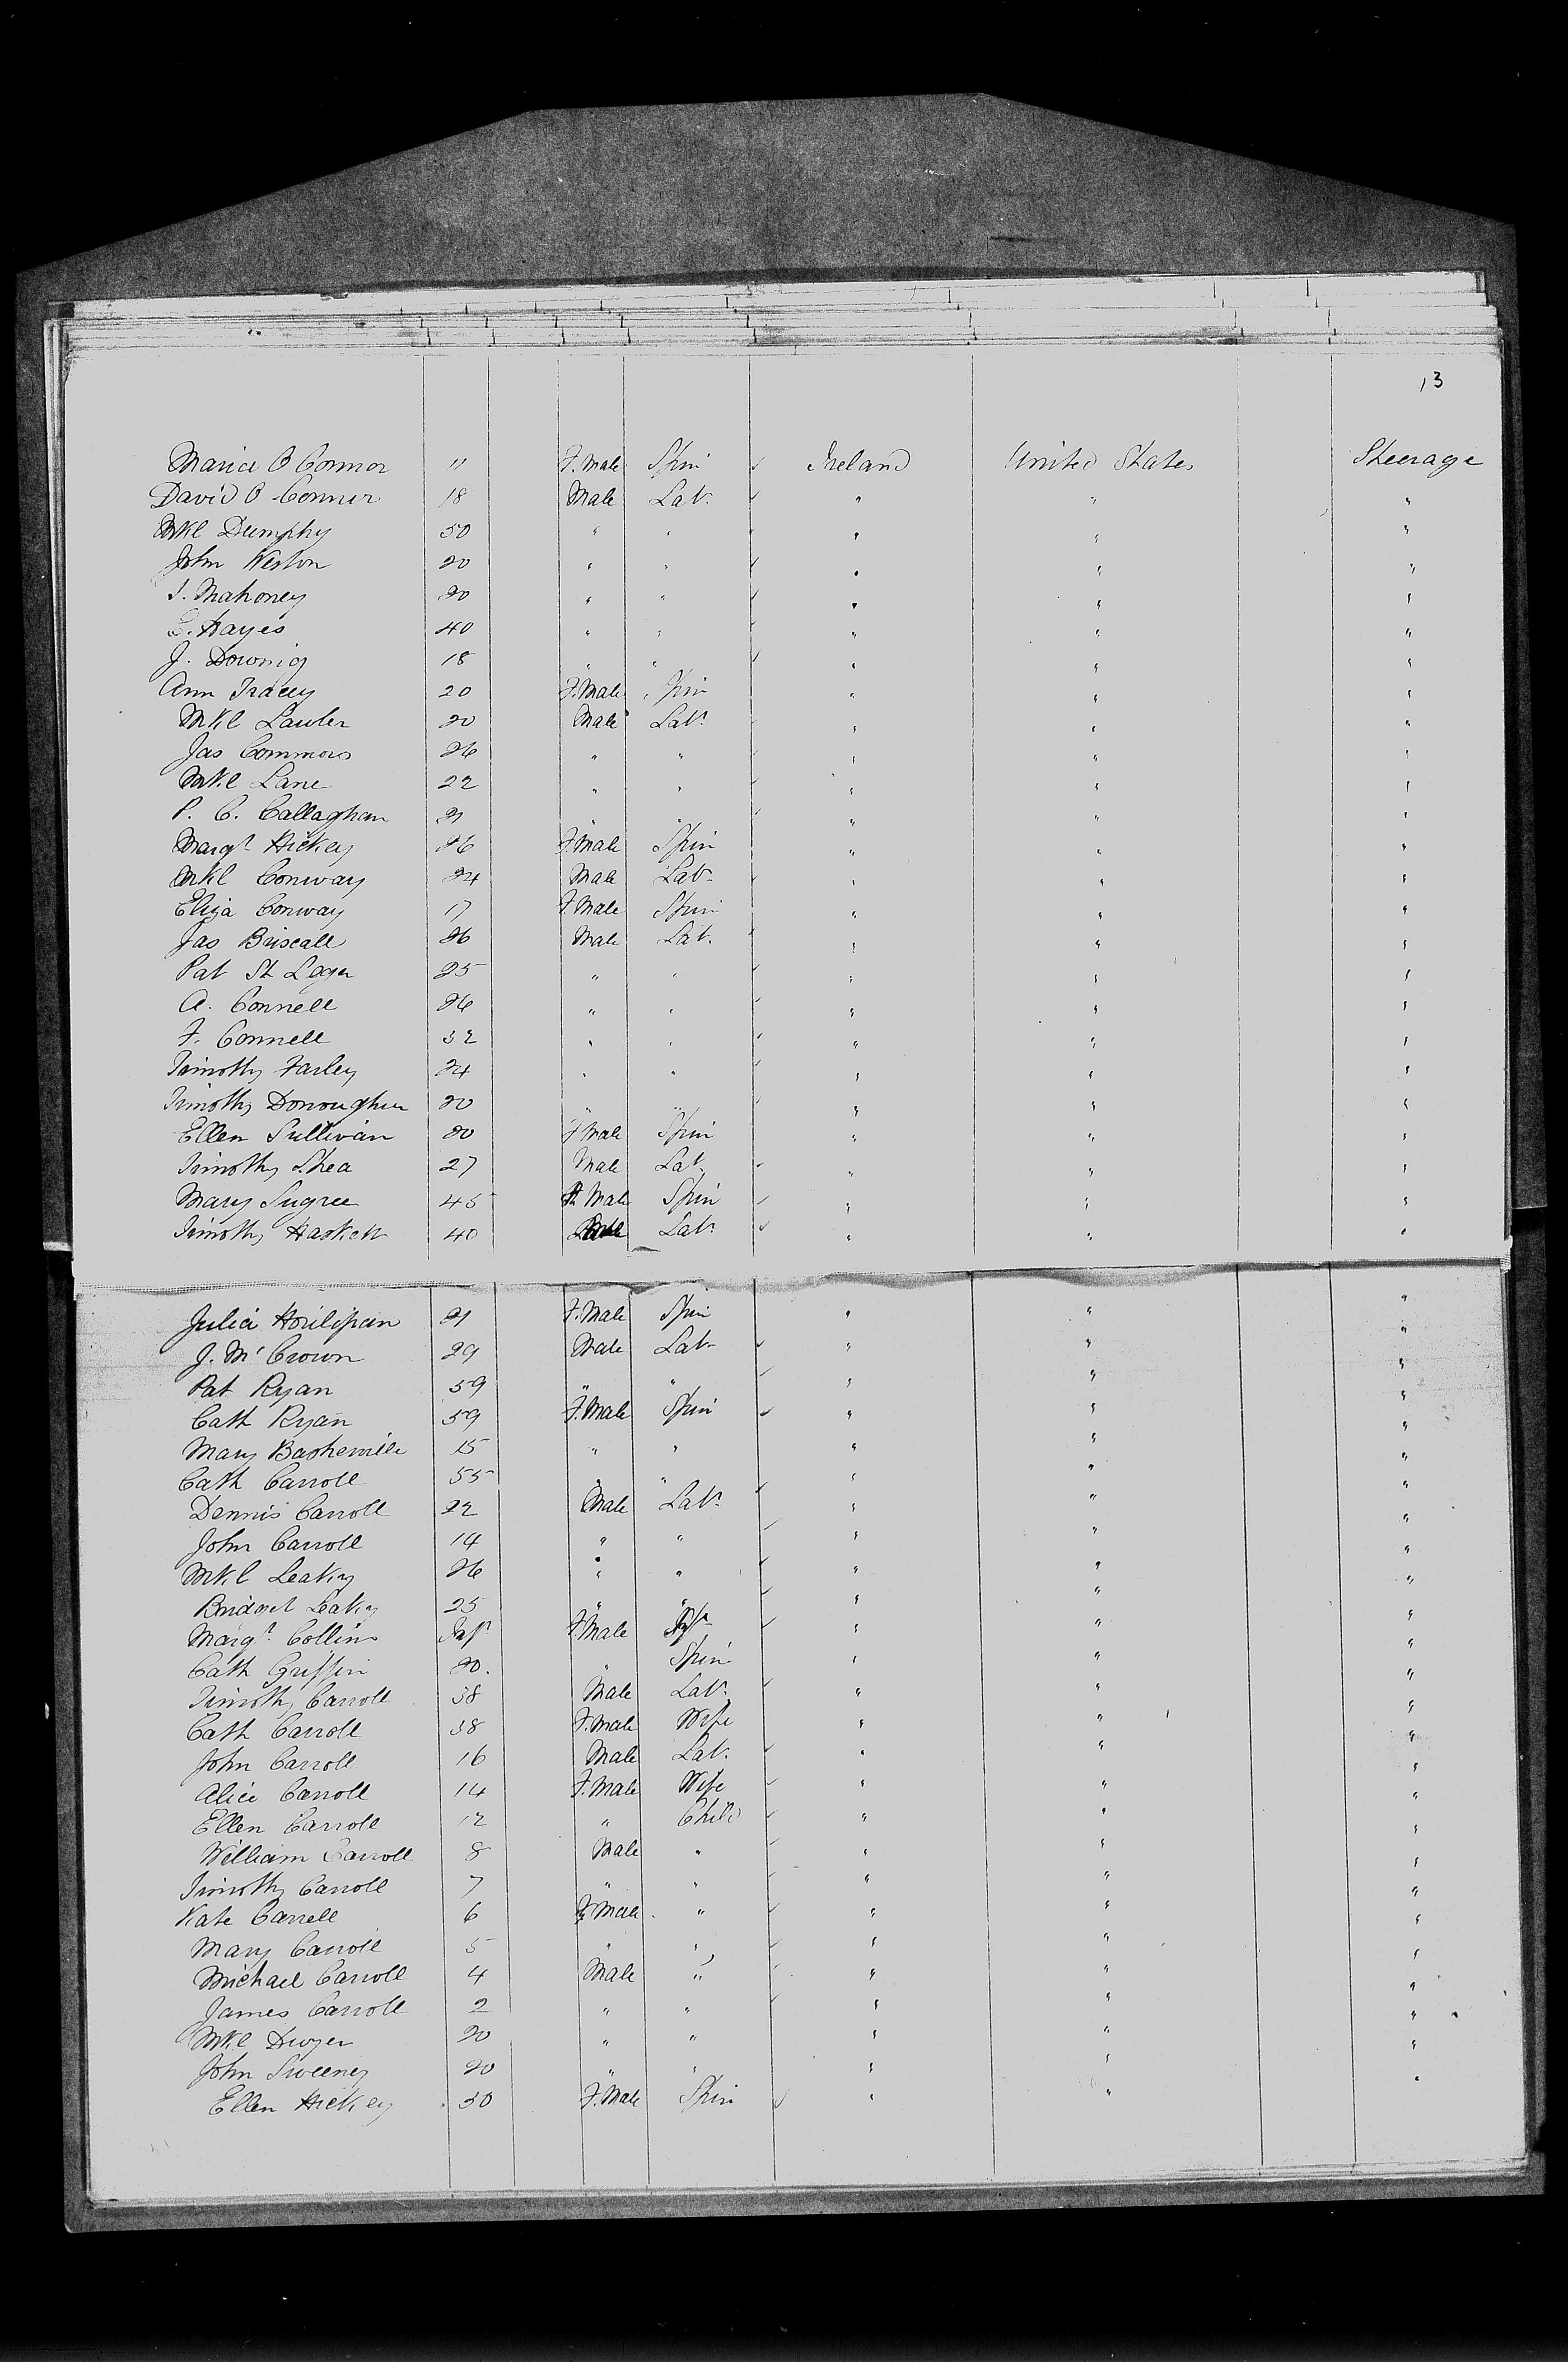 13
Maria O Connor 11 F. Male Spin Ireland United States Steerage
David O Connor 18 Male Labr " " "
Mkl Dumphy 50 " " " " "
John Weston 20 " " " " "
J. Mahoney 20 " " " " "
E. Hayes 40 " " " " "
J. Downig 18 " " " " "
Ann Tracey 20 F. Male Spin " " "
Mkl Lawler 20 Male Labr " " "
Jas Commons 26 " " " " "
Mkl Lane 22 " " " " "
P. C. Callaghan 21 " " " " "
Margt Hickey 26 F. Male Spin " " "
Mkl Conway 24 Male Labr " " "
Eliza Conway 17 F. Male Spin " " "
Jas Briscall 26 Male Labr " " "
Pat St Leger 25 " " " " "
A. Connell 26 " " " " "
F. Connell 32 " " " " "
Timothy Farley 24 " " " " "
Timothy Donoughue 20 " " " " "
Ellen Sullivan 20 F Male Spin " " "
Timothy Shea 27 Male Labr " " "
Mary Sugree 45 F. Male Spin " " "
Timothy Haskett 40 Male Labr " " "
Julia 21 F. Male Spin " " "
J. Mc Crown 29 Male Labr " " "
Pat Ryan 59 " " " " "
Cath Ryan 59 F. Male Spin " " "
Mary Baskerville 15 " " " " "
Cath Carroll 55 " " " " "
Dennis Carroll 22 Male Labr " " "
John Carroll 14 " " " " "
Mkl Leaky 26 " " " " "
Bridget Leaky 25 " " " " "
Margt Collins Inft F. Male " " "
Cath Griffin 20. " Spin " " "
Timothy Carroll 38 Male Labr " " "
Cath Carroll 38 F. Male Wife " " "
John Carroll 16 Male Labr " " "
Alice Carroll 14 F. Male Wife " " "
Ellen Carroll 12 " Child " " "
William Carroll 8 Male " " " "
Timothy Carroll 7 " " " " "
Kate Carrell 6 F Male " " " "
Mary Carroll 5 " " " " "
Michael Carroll 4 Male " " " "
James Carroll 2 " " " " "
Mkl Dwyer 20 " " " " "
John Sweeney 20 " " " " "
Ellen Hickey 30 F. Male Spin " " "